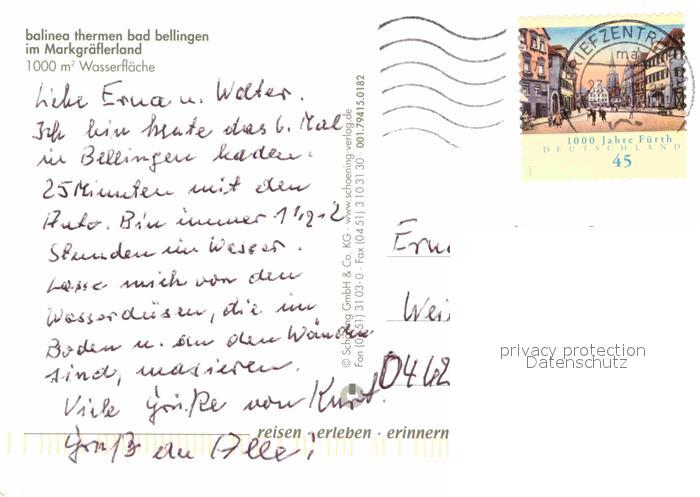 balinea thermen bad bellingen
im Markgräflerland
1000 m² Wasserfläche
Liebe Erna u. Walter.
Ich bin heute das 6. Mal
in Bellingen baden.
25 Minuten mit den
Auto. Bin immer 1 1/2-2
Stunden im Wasser.
Lasse mich von den
Wasserdüsen, die im
Boden u. an den Wänden
sind, masieren.
Viele Grüße von Kurt.
Gruß an Alle!
© Schöning GmbH & Co. KG · www.schoening-verlag.de
Fon (04 51) 31 03-0 · Fax (04 51) 3 10 31 30 · 001.79415.0182
BRIEFZENTR
1000 Jahre Fürth
DEUTSCHLAND
45
Erna
Wei
0462
privacy protection
Datenschutz
reisen · erleben · erinnern